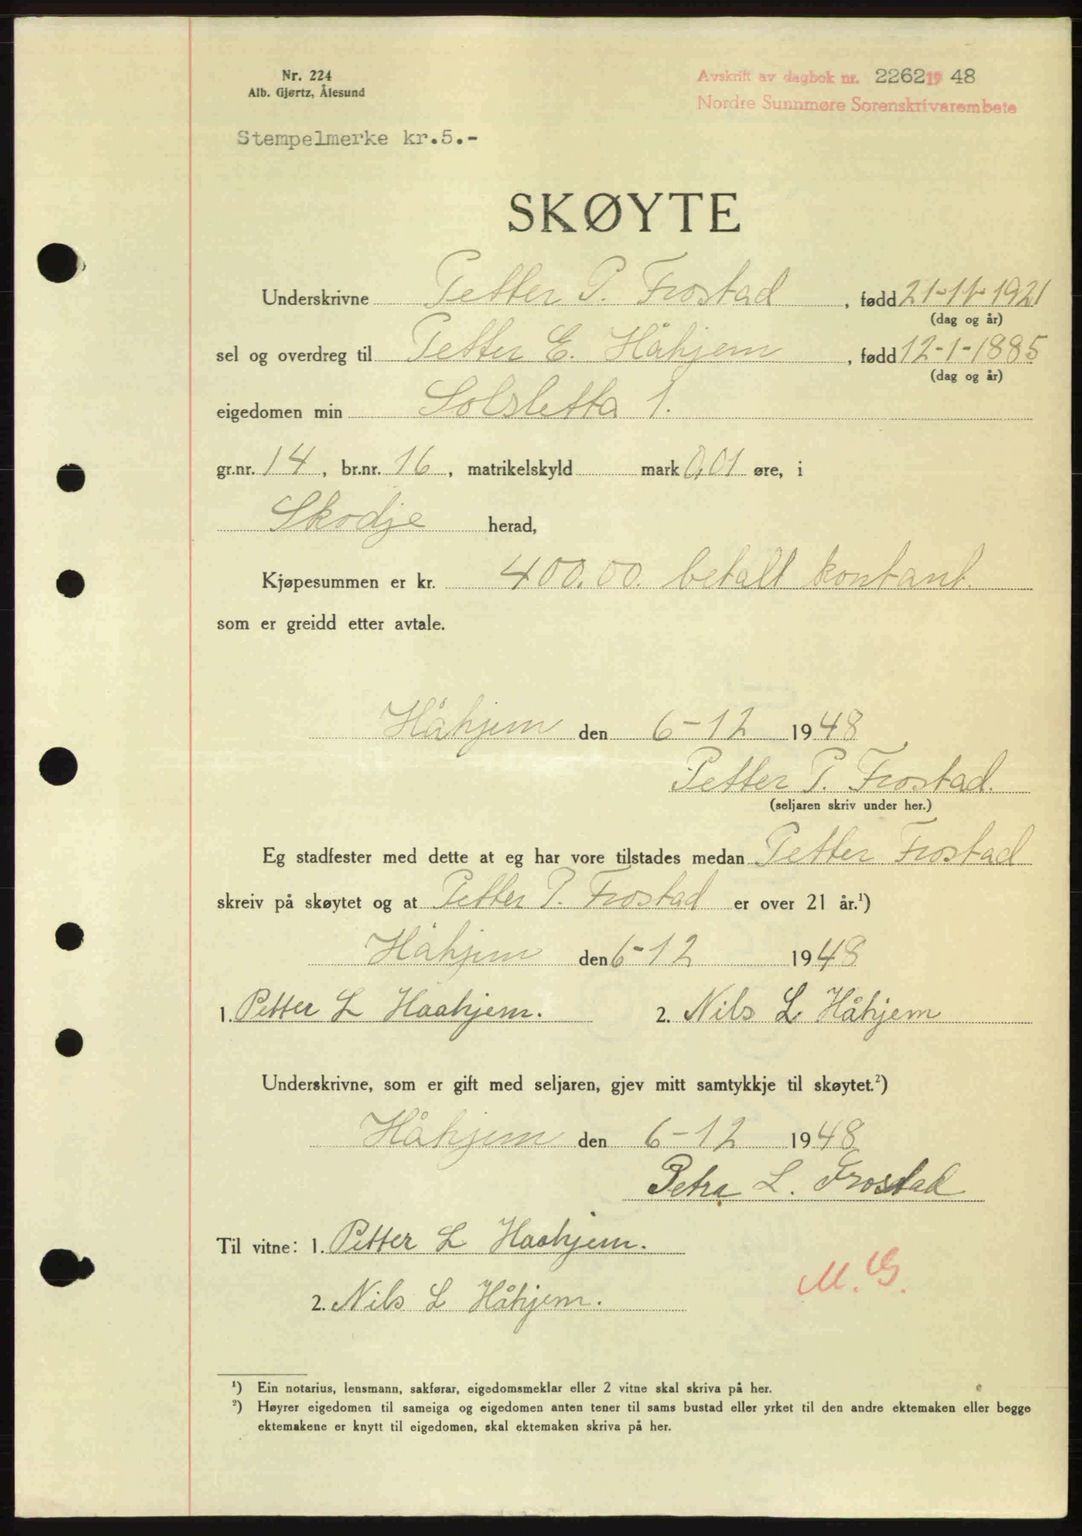 Nr. 224
Alb. Gjørtz, Ålesund
Avskrift av dagbok nr. 2262 19 48
Nordre Sunnmøre Sorenskrivarembete
Stempelmerke kr.5.-
SKØYTE
Underskrivne Petter P. Frostad , fødd 21-11-1921
(dag og år)
sel og overdreg til Petter E. Håhjem , fødd 12-1-1885
(dag og år)
eigedomen min Solsletta 1.
gr.nr. 14 , br.nr. 16 , matrikelskyld mark 0,01 øre, i
Skodje herad,
Kjøpesummen er kr. 400.00 betalt kontant.
som er greidd etter avtale.
Håhjem den 6-12 1948
Petter P. Frostad.
(seljaren skriv under her.)
Eg stadfester med dette at eg har vore tilstades medan Petter Frostad
skreiv på skøytet og at Petter P. Frostad er over 21 år.¹)
Håhjem den 6-12 1948
1. Petter L Haahjem. 2. Nils L Håhjem
Underskrivne, som er gift med seljaren, gjev mitt samtykkje til skøytet.²)
Håhjem den 6-12 1948
Petra L. Frostad
Til vitne: 1. Petter L Haahjem.
M.G.
2. Nils L Håhjem.
¹) Ein notarius, lensmann, sakførar, eigedomsmeklar eller 2 vitne skal skriva på her.
²) Høyrer eigedomen til sameiga og eigedomen anten tener til sams bustad eller yrket til den andre ektemaken eller begge
ektemakene er knytt til eigedomen, skal ektemaken skriva på her.